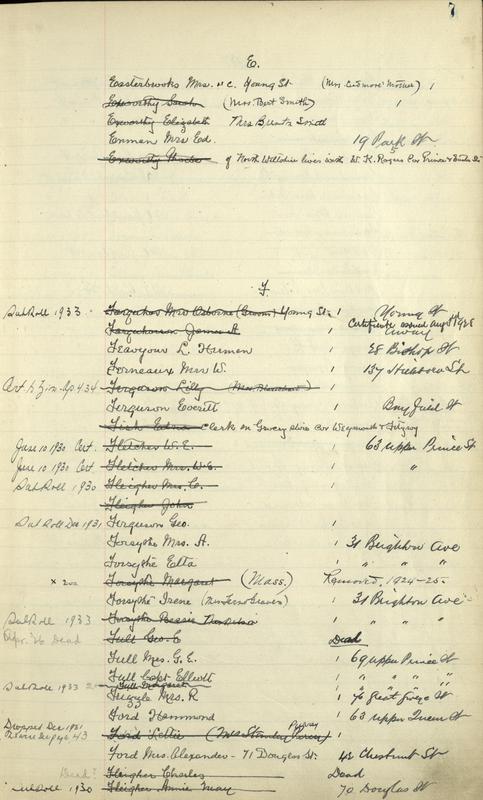 7
E.
Easterbrooks Mrs. W. C. Young St (Mrs. Cudmore' Mother) 1
Exworthy Sarah (Mrs. Bert Smith) 1
Exworthy Elizabeth Mrs Smith
Enman Mrs Ed. 19 Park St
Exworthy of North Wiltshire lives with W. K. Rogers Cor Prince &
F
Sub Roll 1933 Farquhar Mrs Osborne Young St. 1 Young St
Farquharson James A 1 Certificate issued Aug 1928 away
Feavyour L. Herman 1 28 Bishop St
Forneaux Mrs W. 1 137 Hillsboro St
Ap 4 34 Ferguson Lilly (Mrs. Blanchard) 1
Ferguson Everett Bayfield St
Fish Edna Clark on Grocery store cor Weymouth & Fitzroy
June 10 1930 Cert. Fletcher W. E. 1 63 upper Prince St.
June 10 1930 Cert. Fletcher Mrs. W. E. 1 "
Sub Roll 1930 Fleigher Mrs. C. 1
Fleigher John
Sub Roll Dec 1931 Ferguson Geo. 1
Forsythe Mrs. A. 1 31 Brighton Ave
Forsythe Etta 1 " " "
x Forsythe Margaret (Mass.) Removed, 1924-25-
Forsythe Irene (Miss Graves) 1 31 Brighton Ave
Sub Roll 1933 Forsythe Bessie 1 " " "
Apr. 26 Dead Full Geo. E Dead
Full Mrs. G. E. 1 69 upper Prince St
Full Capt Ellwott 1 " " "
Sub Role 1933 Full Margaret
Fugyle Mrs. R 1 76 Great George St
Ford Hammond 1 63 upper Queen St
Dropped Dec. 1931
43 Ford Lottie (Mrs Stanley) 1
Ford Mrs. Alexander - 71 Douglas St. 1 42 Chestnut St
Dead? Fleigher Charles Dead
Roll 1930 Fleigher Annie May 1 70 Douglas St